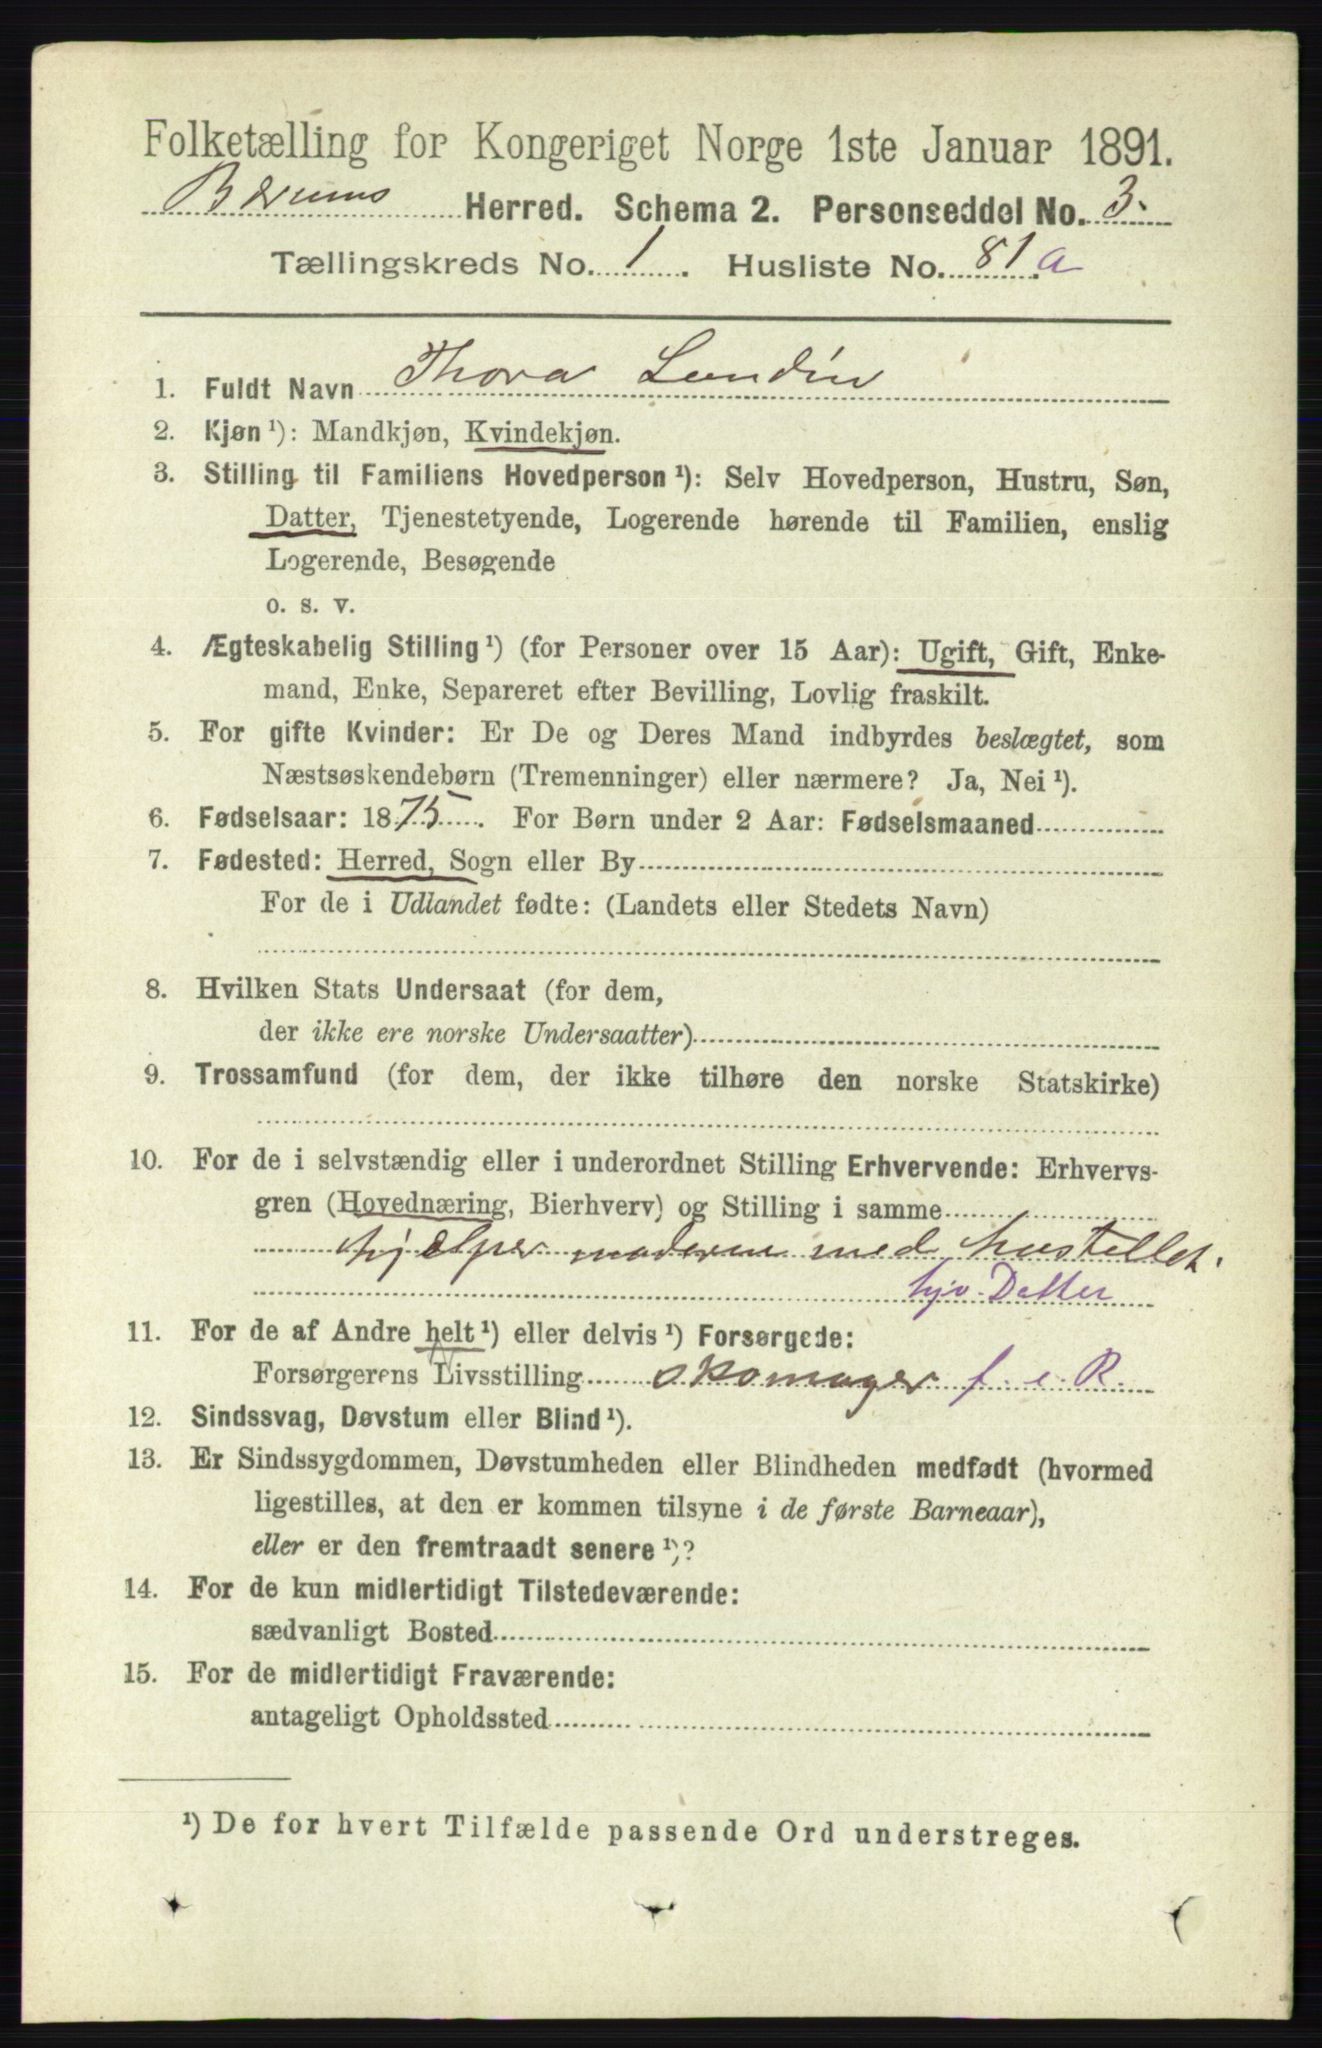 Folketælling for Kongeriget Norge 1ste Januar 1891.
Bærums Herred. Schema 2. Personseddel No. 3.
Tællingskreds No. 1. Husliste No. 81 a
1. Fuldt Navn Thora Lundin
2. Kjøn ¹): Mandkjøn, Kvindekjøn.
3. Stilling til Familiens Hovedperson ¹): Selv Hovedperson, Hustru, Søn,
Datter, Tjenestetyende, Logerende hørende til Familien, enslig
Logerende, Besøgende
o. s. v.
4. Ægteskabelig Stilling ¹) (for Personer over 15 Aar): Ugift, Gift, Enke-
mand, Enke, Separeret efter Bevilling, Lovlig fraskilt.
5. For gifte Kvinder: Er De og Deres Mand indbyrdes beslægtet, som
Næstsøskendebørn (Tremenninger) eller nærmere? Ja, Nei ¹).
6. Fødselsaar: 1875. For Børn under 2 Aar: Fødselsmaaned
7. Fødested: Herred, Sogn eller By
For de i Udlandet fødte: (Landets eller Stedets Navn)
8. Hvilken Stats Undersaat (for dem,
der ikke ere norske Undersaatter)
9. Trossamfund (for dem, der ikke tilhøre den norske Statskirke)
10. For de i selvstændig eller i underordnet Stilling Erhvervende: Erhvervs-
gren (Hovednæring, Bierhverv) og Stilling i samme
hjælper moderen med husstellet.
hjv. Datter
11. For de af Andre helt ¹) eller delvis ¹) Forsørgede:
Forsørgerens Livsstilling skomager f. e. R.
12. Sindssvag, Døvstum eller Blind ¹).
13. Er Sindssygdommen, Døvstumheden eller Blindheden medfødt (hvormed
ligestilles, at den er kommen tilsyne i de første Barneaar),
eller er den fremtraadt senere ¹)?
14. For de kun midlertidigt Tilstedeværende:
sædvanligt Bosted
15. For de midlertidigt Fraværende:
antageligt Opholdssted
¹) De for hvert Tilfælde passende Ord understreges.